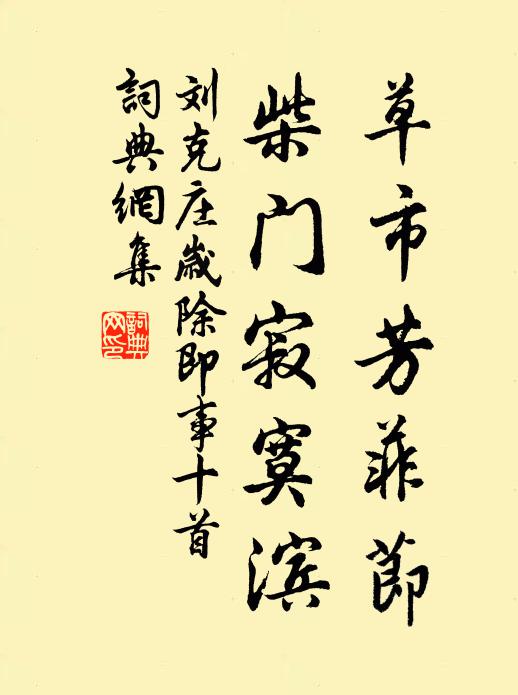 草市芳菲節
柴门寂寞滨
刘克庄歲除即事十首
詞典網集
詞典网印